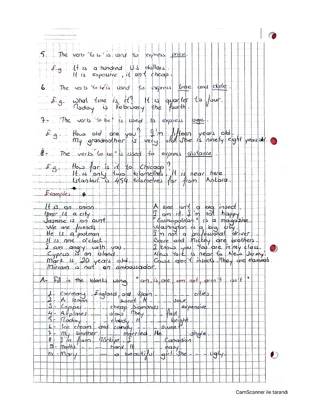 5. The verb "to be" is used to express price.
E.g. It is a hundred U.S. dollars.
It is expensive, it isn't cheap.
6. The verb "to be" is used to express time and date.
E.g. What time is it? It is quarter to four.
Today is February the fourth.
7.- The verb "to be" is used to express age.
E.g. How old are you? I'm fifteen years old.
My grandmother is very old. She is ninety eight years old
8- The verb "to be" is used to express distance.
E.g. How far is it to Chicago?
It is only two kilometres. It is near here.
Istanbul is 454 kilometres far from Ankara.
Examples
It is an onion
A bee isn't a big insect.
Izmir is a city
I am ill. I'm not happy
Jasmine is an aunt
"Cosmopolitan" is a magazine.
We are friends
Washington is a big city
He is a postman
I'm not a professional driver
It is nine o'clock
Dave and Mickey are brothers.
I am angry with you.
I know you. You are in my class.
Cyprus is an island
New York is near to New Jersey.
Mark is 20 years old.
Cows aren't insects. They are mammals
Miriam is not an ambassador.
A- Fill in the blanks using "am, is, are, am not, aren't, isn't"
1- Germany, England, and Spain cities
2- A lemon sweet. It sour
3- Copper cheap. Diamonds expensive
4- Airplanes slow. They fast
5- Today cloudy. It bright.
6- Ice cream and candy sweet
7- My brother married. He single.
8- I from Türkiye. I Canadian
9- Maths hard. It easy
10- Mary a beautiful girl. She ugly.
CamScanner ile tarandı